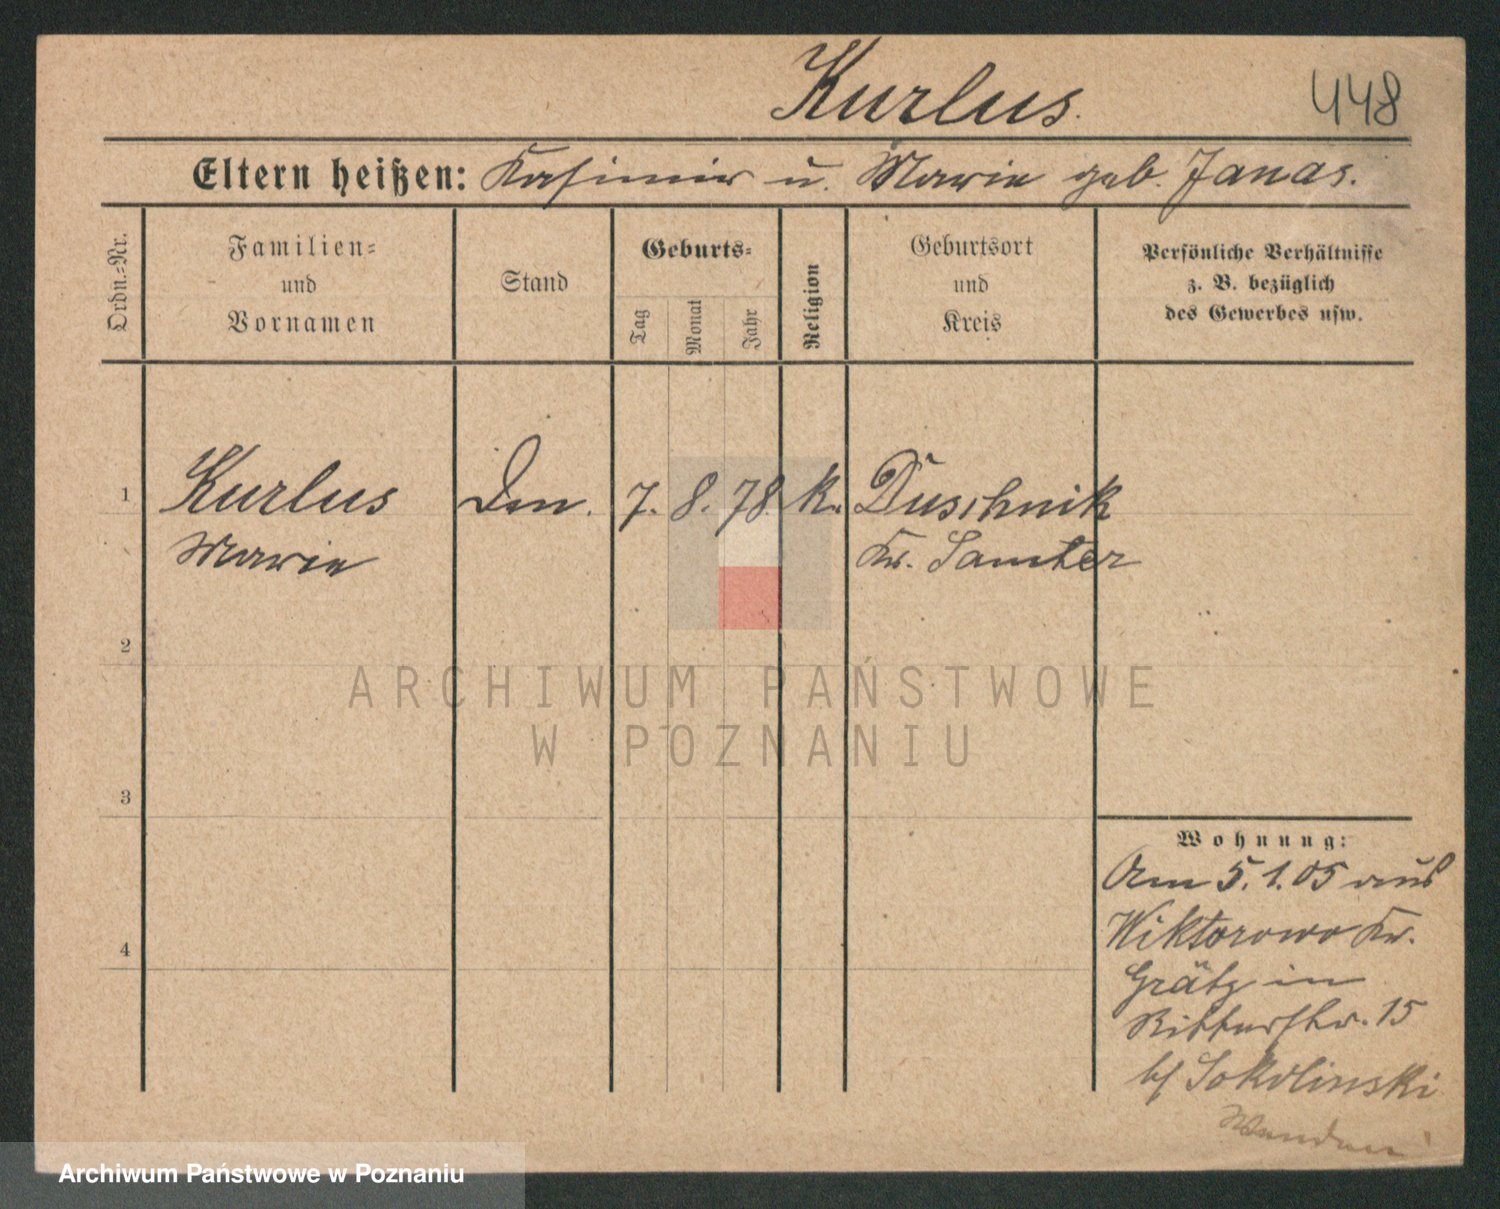 Kurlus.
448
Eltern heißen: Kasimir u. Marie geb. Janas.
Ordn.=Nr.
Familien=
und
Vornamen
Stand
Geburts=
Tag
Monat
Jahr
Religion
Geburtsort
und
Kreis
Persönliche Verhältnisse
z. B. bezüglich
des Gewerbes usw.
1 Kurlus 7. 8. 78. k. Duschnik
Marie Kr. Samter
2
3
4
Wohnung:
Am 5.1.05 aus
Wiktorowo Kr.
Grätz in
Ritterstr. 15
bf Sokolinski
ARCHIWUM PAŃSTWOWE
W POZNANIU
Archiwum Państwowe w Poznaniu